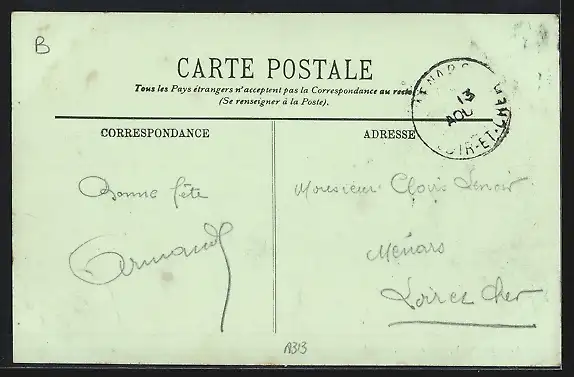 B
CARTE POSTALE
Tous les Pays étrangers n'acceptent pas la Correspondance au recto
(Se renseigner à la Poste).
MENARS
13
AOU
LOIR-ET-CHER
CORRESPONDANCE
ADRESSE
Bonne fête
Armand
Monsieur Clovis Lenoir
Ménars
Loir et Cher
A313